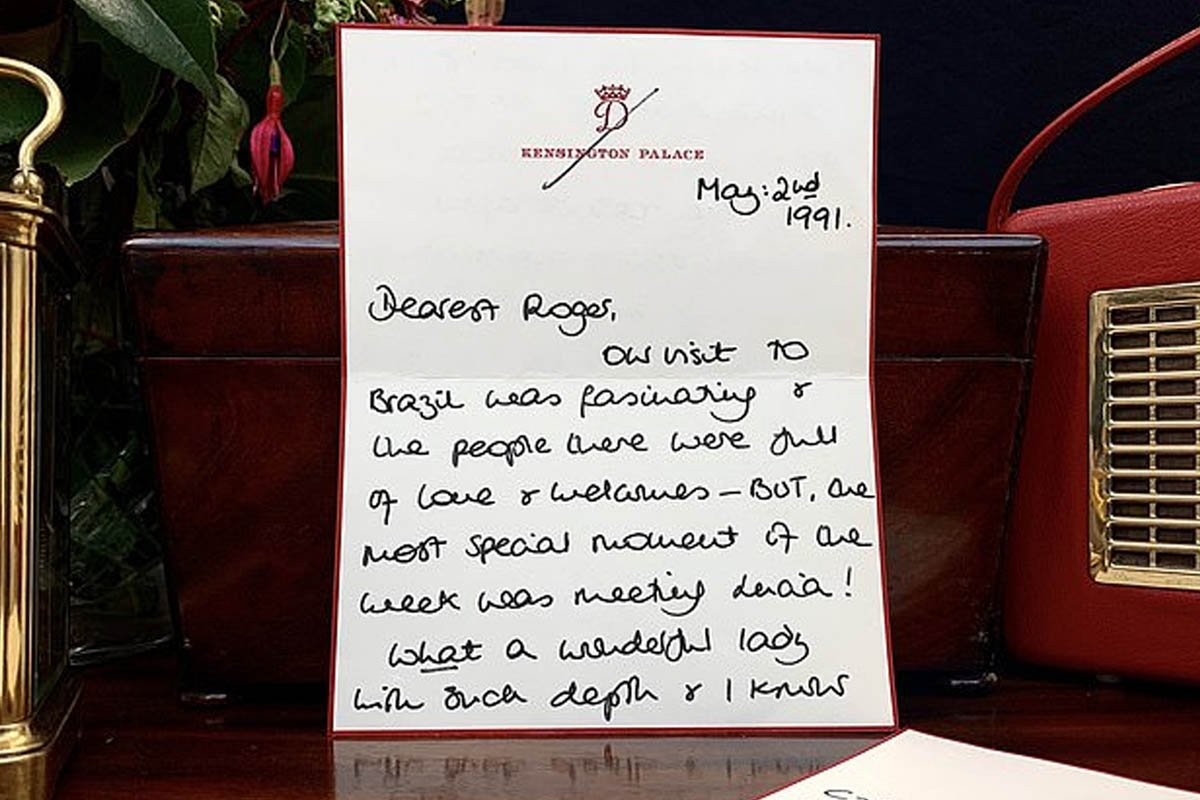 D
KENSINGTON PALACE
May: 2nd
1991.
Dearest Roger,
Our visit to
Brazil was fascinating &
the people there were full
of love & welcomes – BUT, the
most special moment of the
week was meeting Lucia!
What a wonderful lady
with such depth & I know